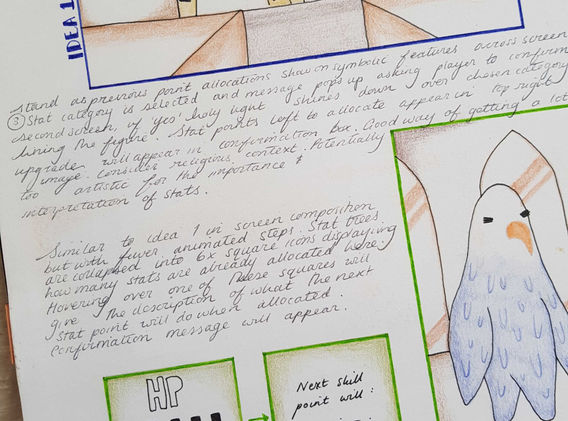 IDEA 1
stand as previous point allocations show on symbolic features across screen
③ Stat category is selected and message pops up asking player to confirm
second screen, if 'yes' holy light shines down over chosen category
lining the figure. Stat points left to allocate appear in top right
upgrade will appear in confirmation box. Good way of getting a lot
image. Consider religious context. Potentially
too artistic for the importance &
interpretation of stats.
Similar to idea 1 in screen composition
but with fewer animated steps. Stat trees
are collapsed into 6x square icons displaying
how many stats are already allocated here.
Hovering over one of these squares will
give the description of what the next
stat point will do when allocated.
Confirmation message will appear.
HP
Next skill
point will: